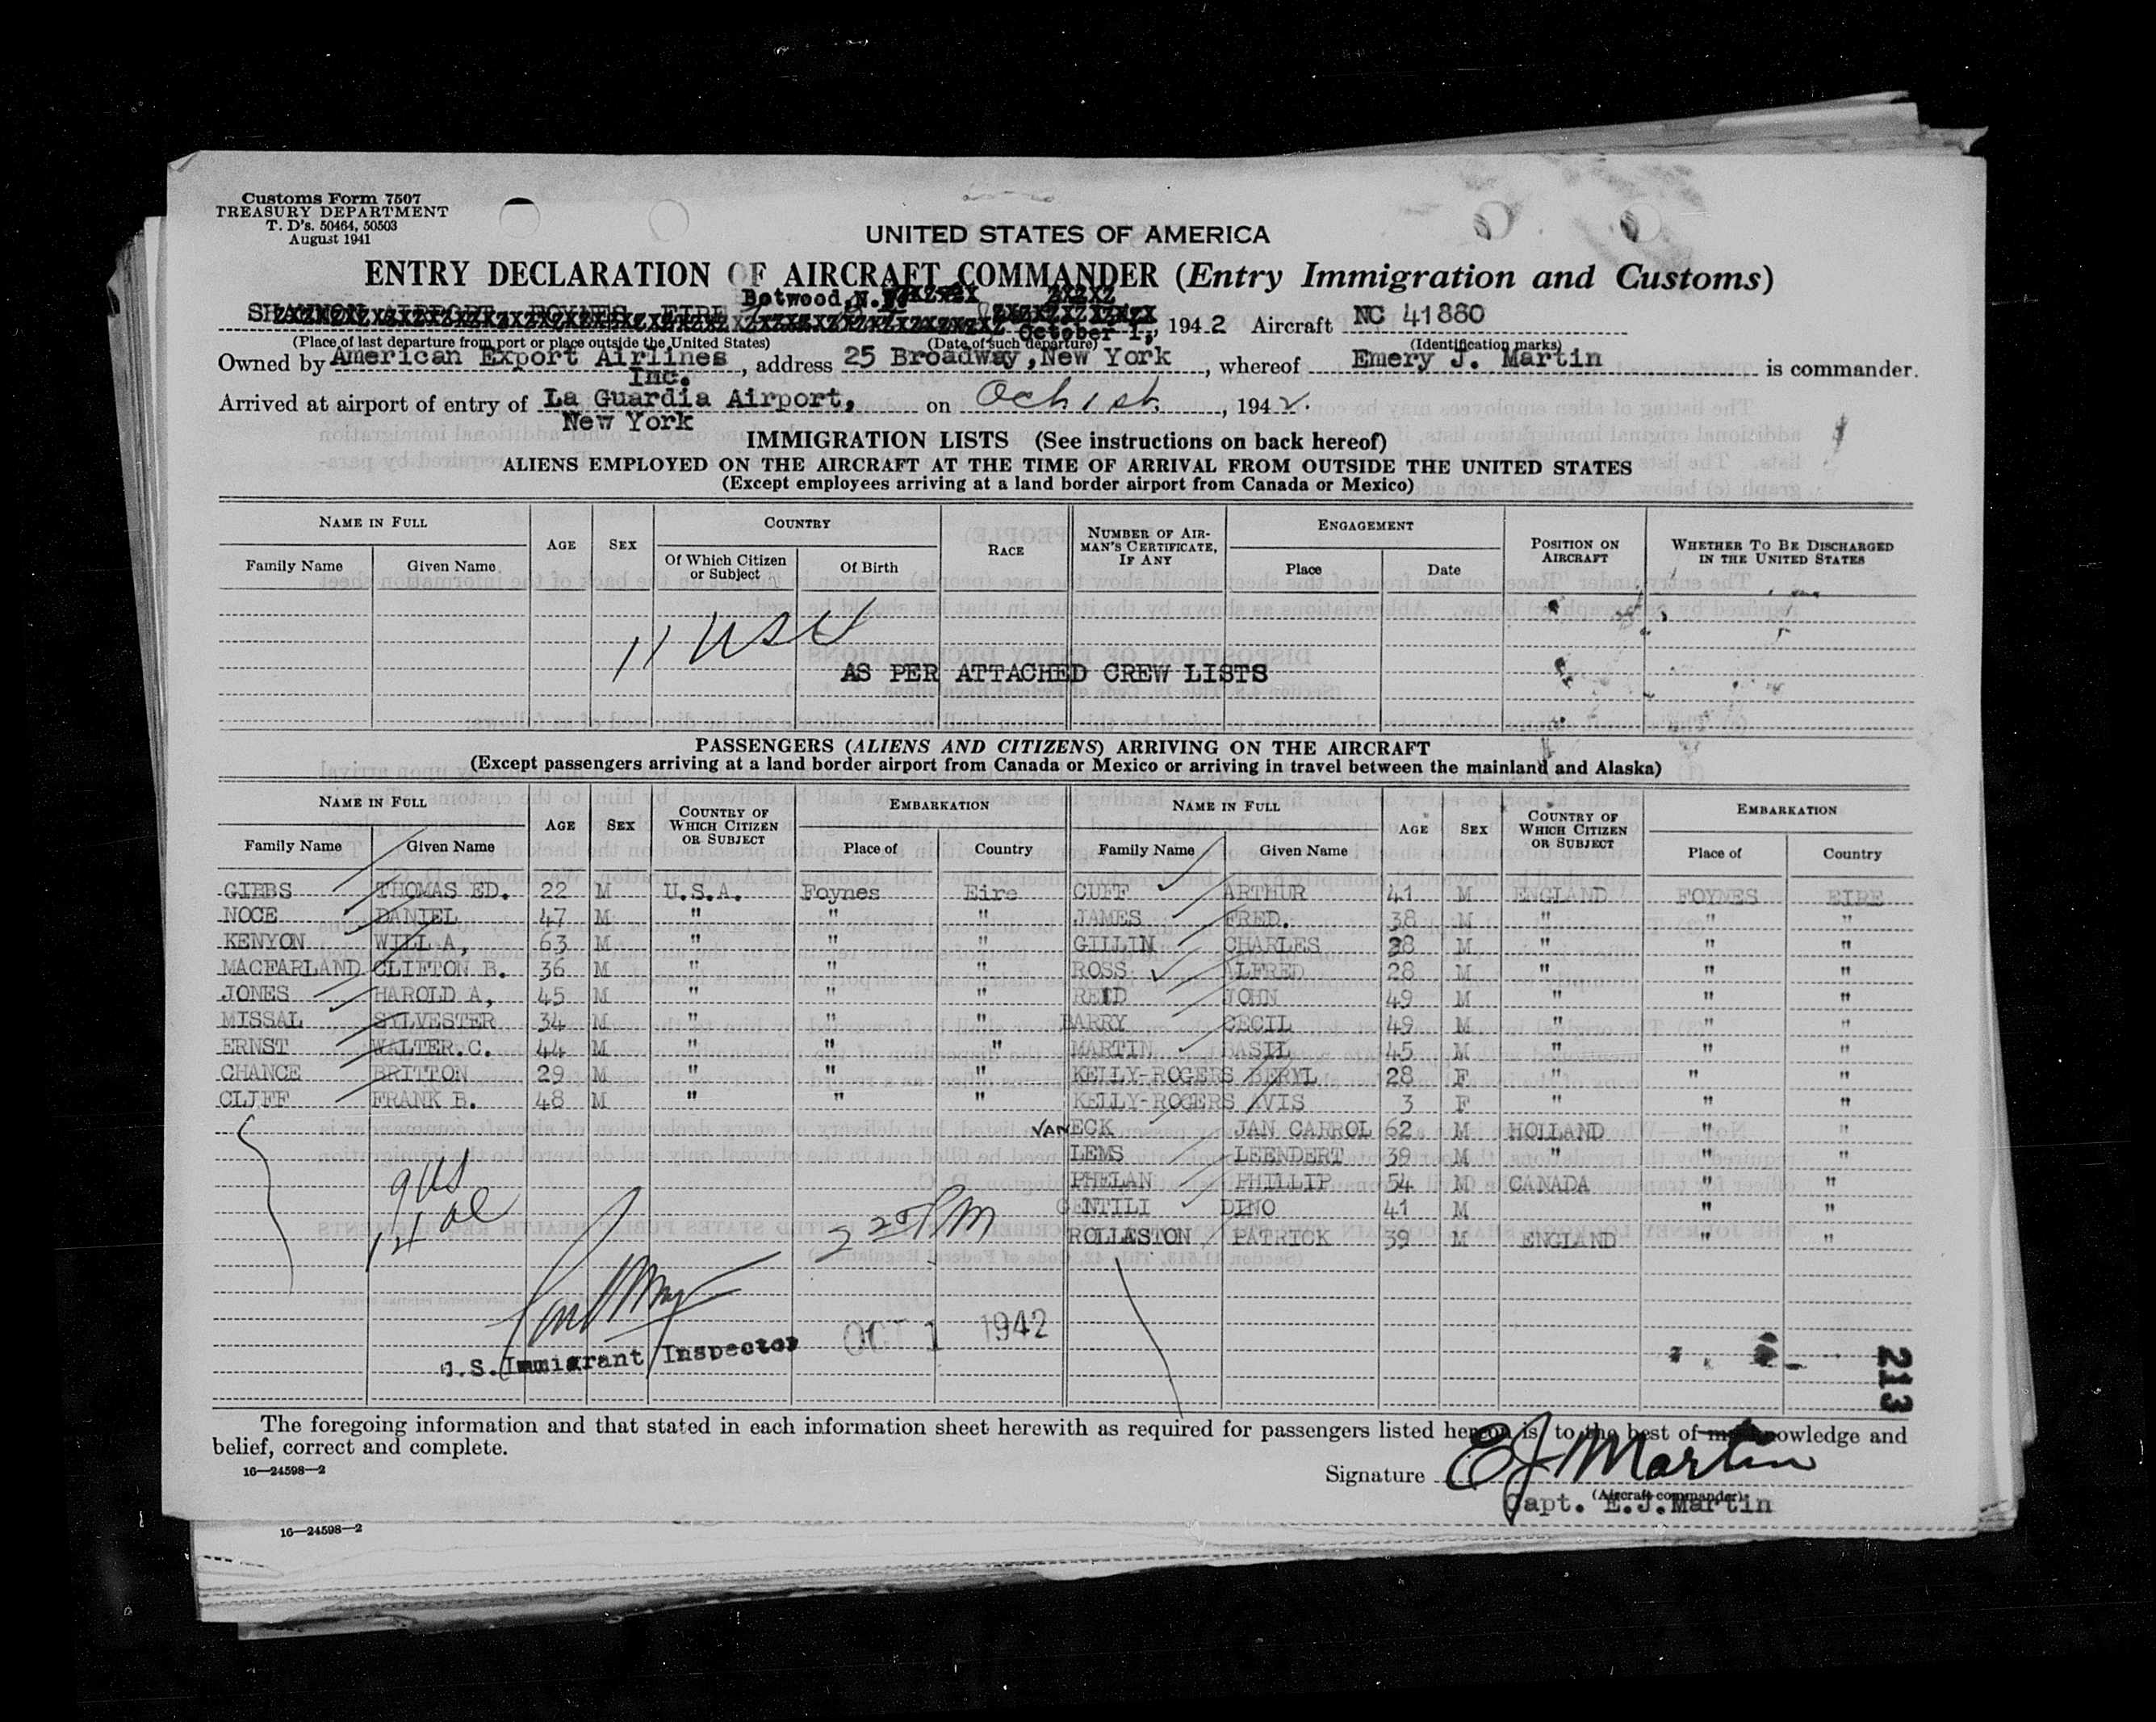 Customs Form 7507
TREASURY DEPARTMENT
T. D's. 50464, 50503
August 1941
UNITED STATES OF AMERICA
ENTRY DECLARATION OF AIRCRAFT COMMANDER (Entry Immigration and Customs)
Botwood, N.F.
SHANNON AIRPORT, FOYNES, EIRE October 1, , 1942 Aircraft NC 41880
(Place of last departure from port or place outside the United States) (Date of such departure) (Identification marks)
Owned by American Export Airlines Inc. , address 25 Broadway, New York , whereof Emery J. Martin is commander.
Arrived at airport of entry of La Guardia Airport, New York on Oct. 1st. , 1942.
IMMIGRATION LISTS (See instructions on back hereof)
ALIENS EMPLOYED ON THE AIRCRAFT AT THE TIME OF ARRIVAL FROM OUTSIDE THE UNITED STATES
(Except employees arriving at a land border airport from Canada or Mexico)
NAME IN FULL AGE SEX COUNTRY RACE NUMBER OF AIRMAN'S CERTIFICATE, IF ANY ENGAGEMENT POSITION ON AIRCRAFT WHETHER TO BE DISCHARGED IN THE UNITED STATES
Family Name Given Name Of Which Citizen or Subject Of Birth Place Date
11 USC
AS PER ATTACHED CREW LISTS
PASSENGERS (ALIENS AND CITIZENS) ARRIVING ON THE AIRCRAFT
(Except passengers arriving at a land border airport from Canada or Mexico or arriving in travel between the mainland and Alaska)
NAME IN FULL AGE SEX COUNTRY OF WHICH CITIZEN OR SUBJECT EMBARKATION NAME IN FULL AGE SEX COUNTRY OF WHICH CITIZEN OR SUBJECT EMBARKATION
Family Name Given Name Place of Country Family Name Given Name Place of Country
GIBBS THOMAS ED. 22 M U.S.A. Foynes Eire CUFF ARTHUR 41 M ENGLAND FOYNES EIRE
NOCE DANIEL 47 M " " " JAMES FRED. 38 M " " "
KENYON WILL A, 63 M " " " GILLIN CHARLES 28 M " " "
MACFARLAND CLIFTON B. 36 M " " " ROSS ALFRED 28 M " " "
JONES HAROLD A, 45 M " " " REID JOHN 49 M " " "
MISSAL SYLVESTER 34 M " " " BARRY CECIL 49 M " " "
ERNST WALTER.C. 44 M " " " MARTIN BASIL 45 M " " "
CHANCE BRITTON 29 M " " " KELLY-ROGERS BERYL 28 F " " "
CLIFF FRANK B. 48 M " " " KELLY-ROGERS AVIS 3 F " " "
VAN ECK JAN CARROL 62 M HOLLAND " "
LEMS LEENDERT 39 M " " "
PHELAN PHILLIP 54 M CANADA " "
GENTILI DINO 41 M " "
ROLLESTON PATRICK 39 M ENGLAND " "
9 US
14 al
2 25 PM
U.S. Immigrant Inspector OCT 1 1942
213
The foregoing information and that stated in each information sheet herewith as required for passengers listed hereon is, to the best of my knowledge and
belief, correct and complete.
16—24598—2
Signature EJ Martin
(Aircraft commander)
Capt. E.J.Martin
16—24598—2